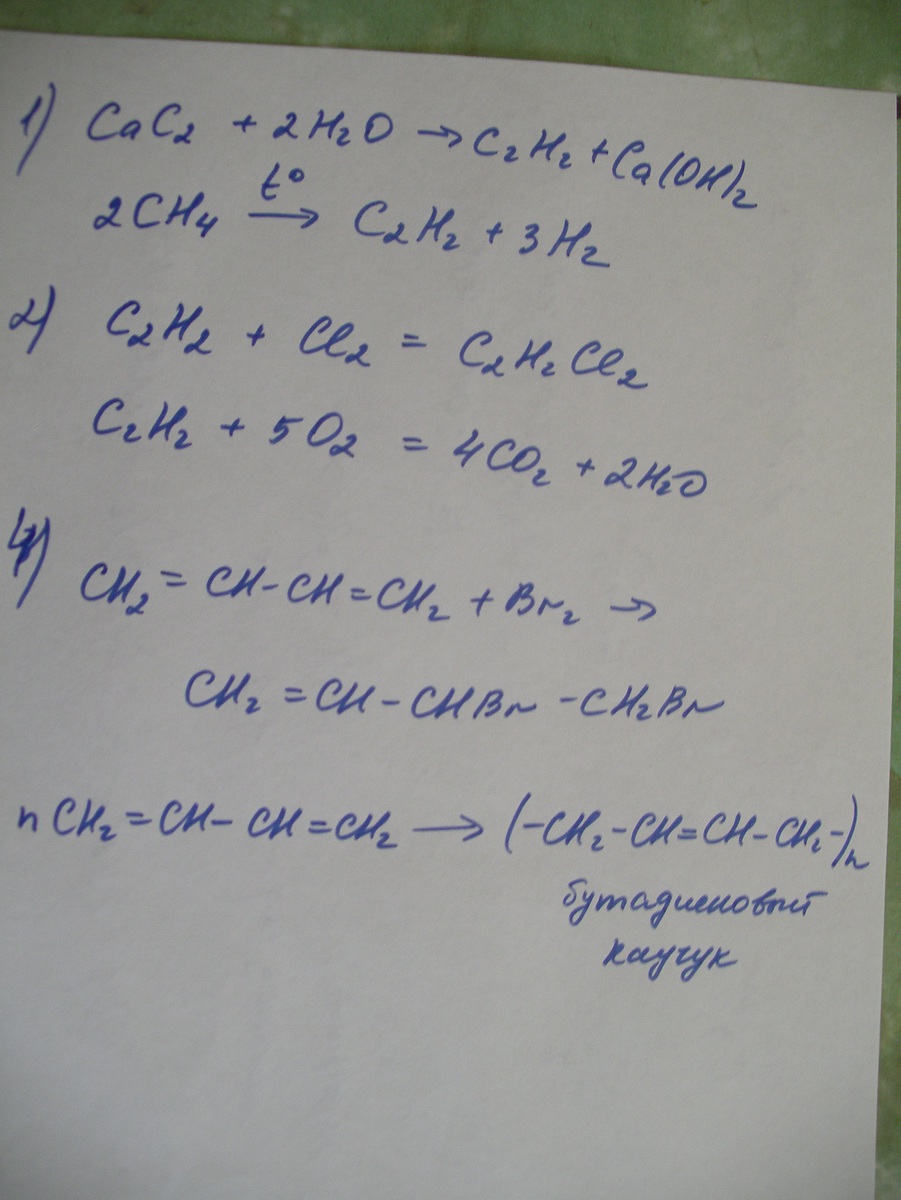 1) CaC₂ + 2H₂O → C₂H₂ + Ca(OH)₂
t°
2CH₄ → C₂H₂ + 3H₂
2) C₂H₂ + Cl₂ = C₂H₂Cl₂
C₂H₂ + 5O₂ = 4CO₂ + 2H₂O
4) CH₂ = CH-CH=CH₂ + Br₂ →
CH₂ = CH - CHBr - CH₂Br
n CH₂ = CH - CH = CH₂ → (-CH₂-CH=CH-CH₂-)n
бутадиеновый
каучук